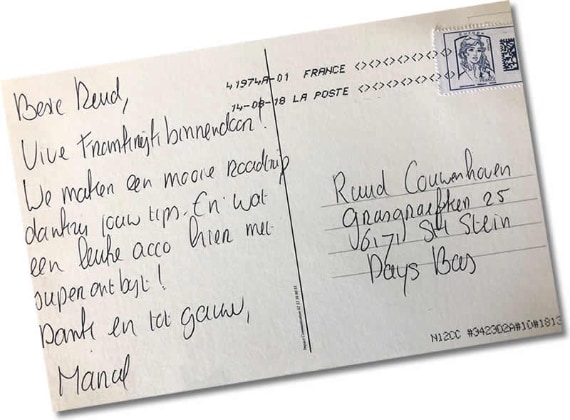 Beste Ruud,
Vive Frankrijk binnendoor!
We maken een mooie roadtrip
dankzij jouw tips. En wat
een leuke acco hier met
superontbijt!
Dank en tot gauw,
Manal
41974A-01 FRANCE
14-08-18 LA POSTE
Ruud Couwenhoven
25
6171 Stein
Pays Bas
N12CC #342302A#10#1813